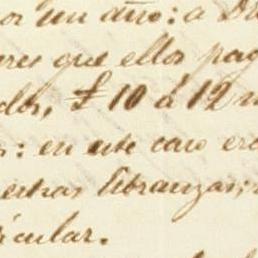 or un año: a D
res que ellos pag
dos, £ 10 á 12 m
s: en este caso er
estras libranzas;
icular.